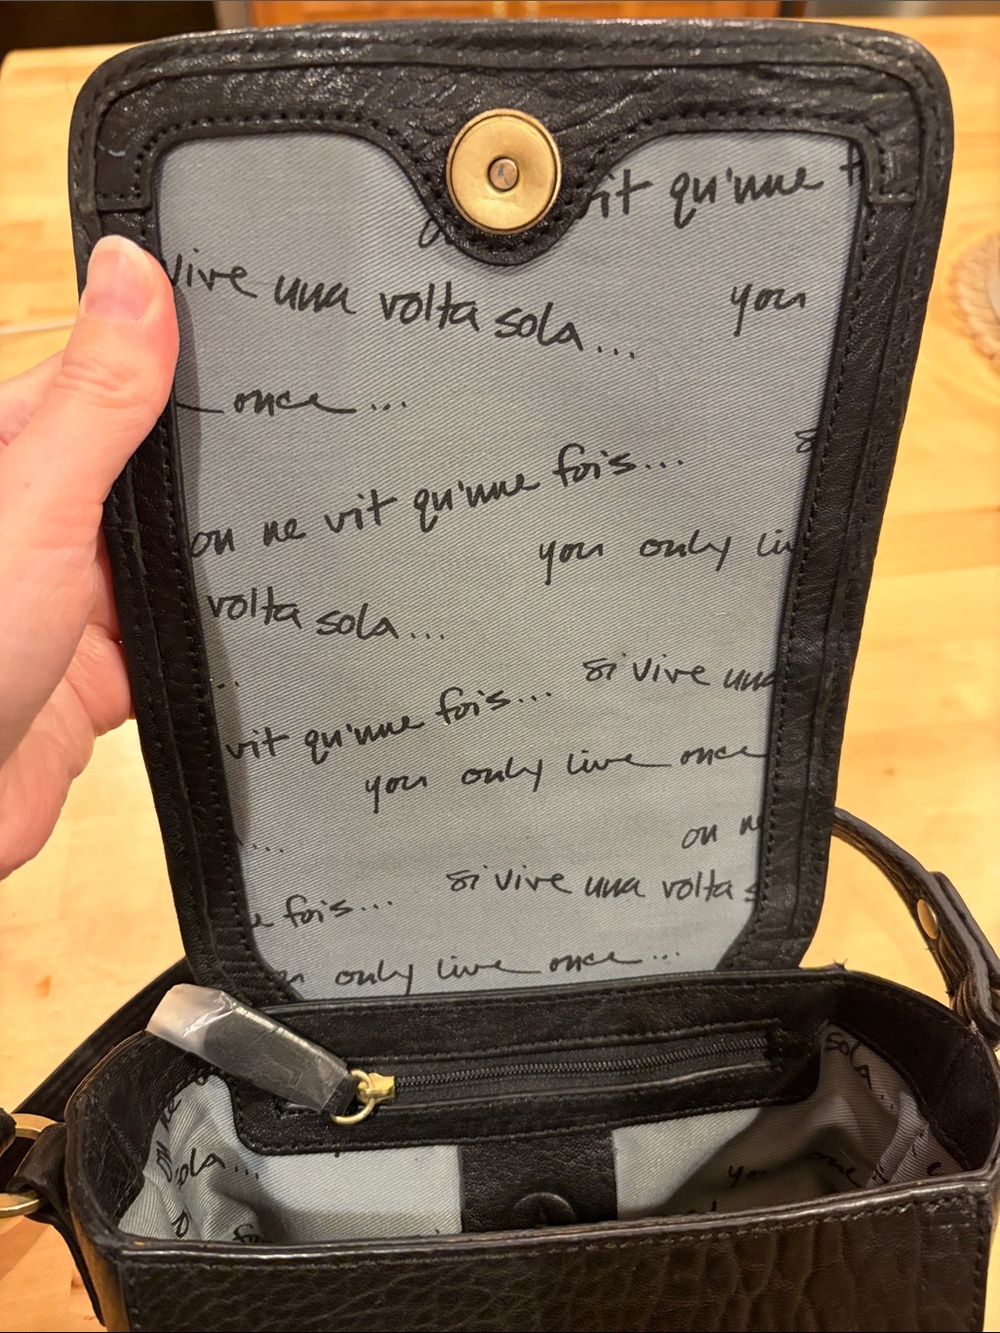 vit qu'une
vive una volta sola...
you
once...
on ne vit qu'une fois...
you only liv
volta sola...
...
si vive una
vit qu'une fois...
you only live once
...
on ne
si vive una volta s
e fois...
only live once...
sola...
on ne
sola...
you once